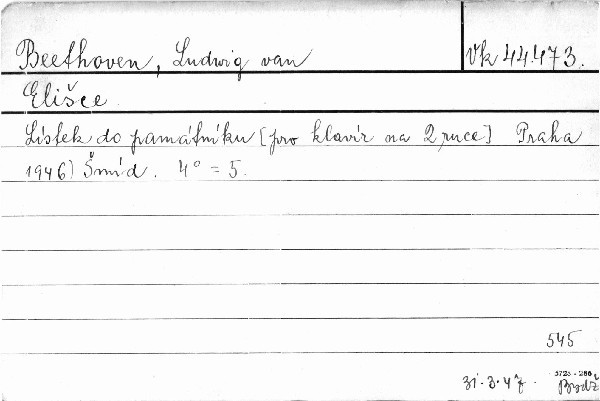 Beethoven, Ludwig van Vk 44.473.
Elišce
Lístek do památníku [pro klavír na 2 ruce] Praha
1946) Šmíd. 4° = 5.
545
5723 - 286
31.3.47.